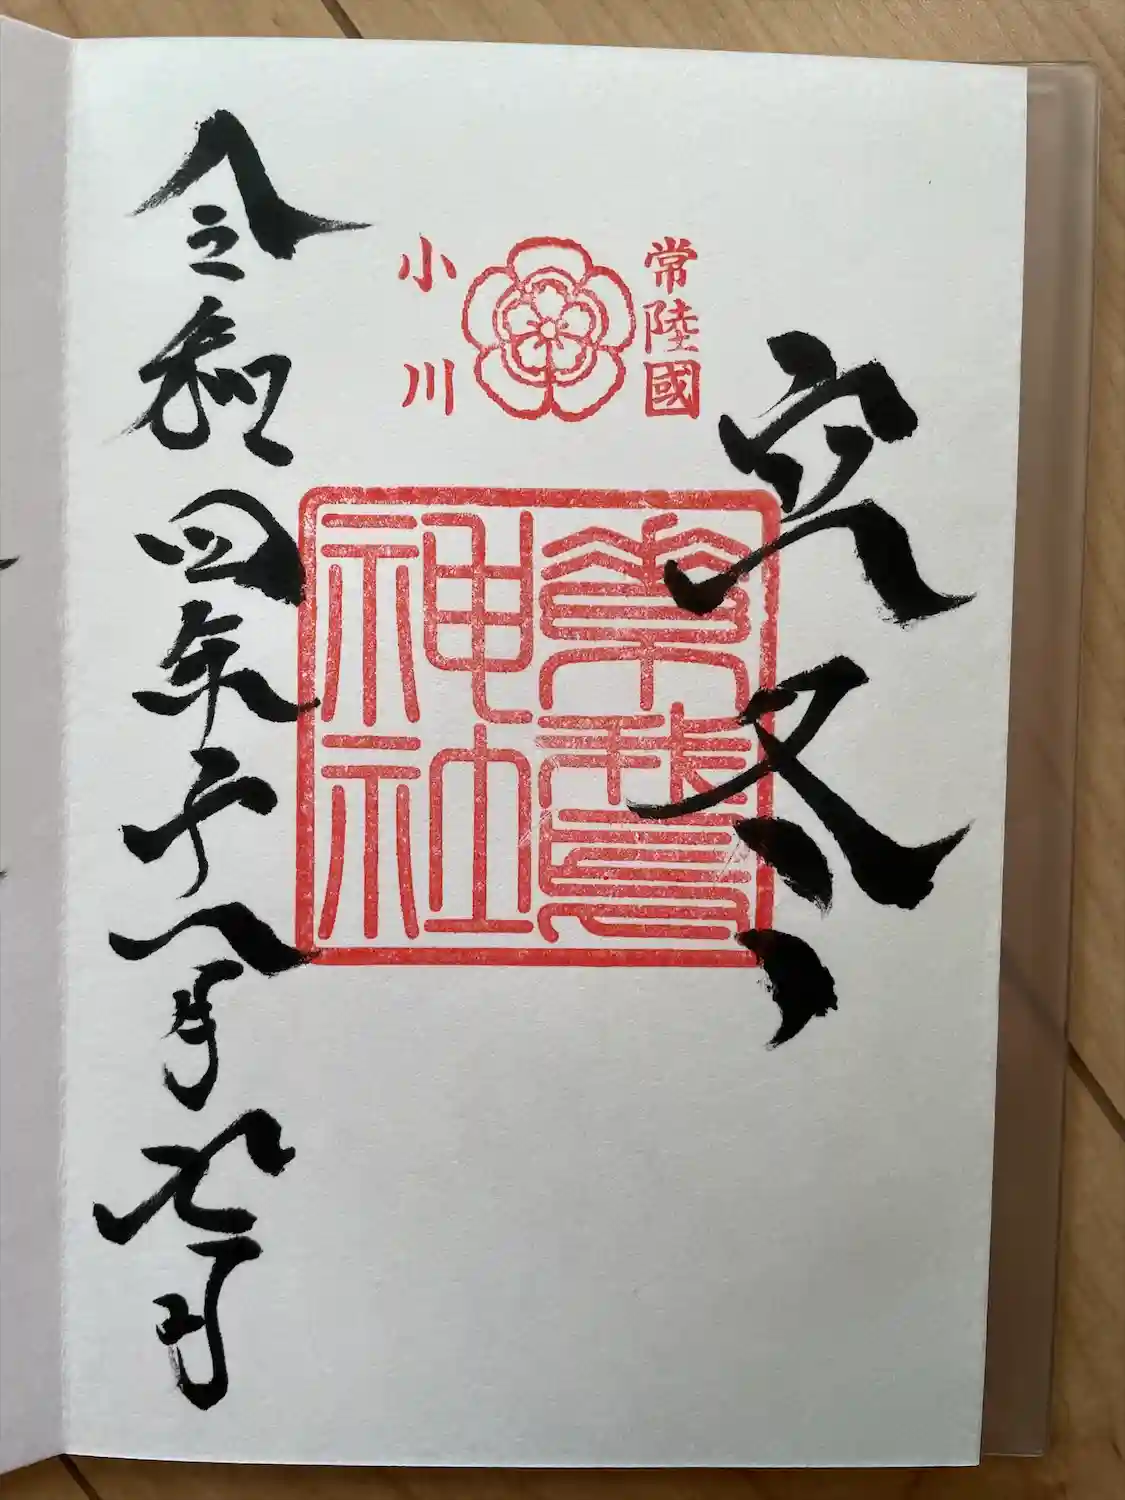 常陸國
小川
立冬
素鵞
神社
令和四年十一月七日